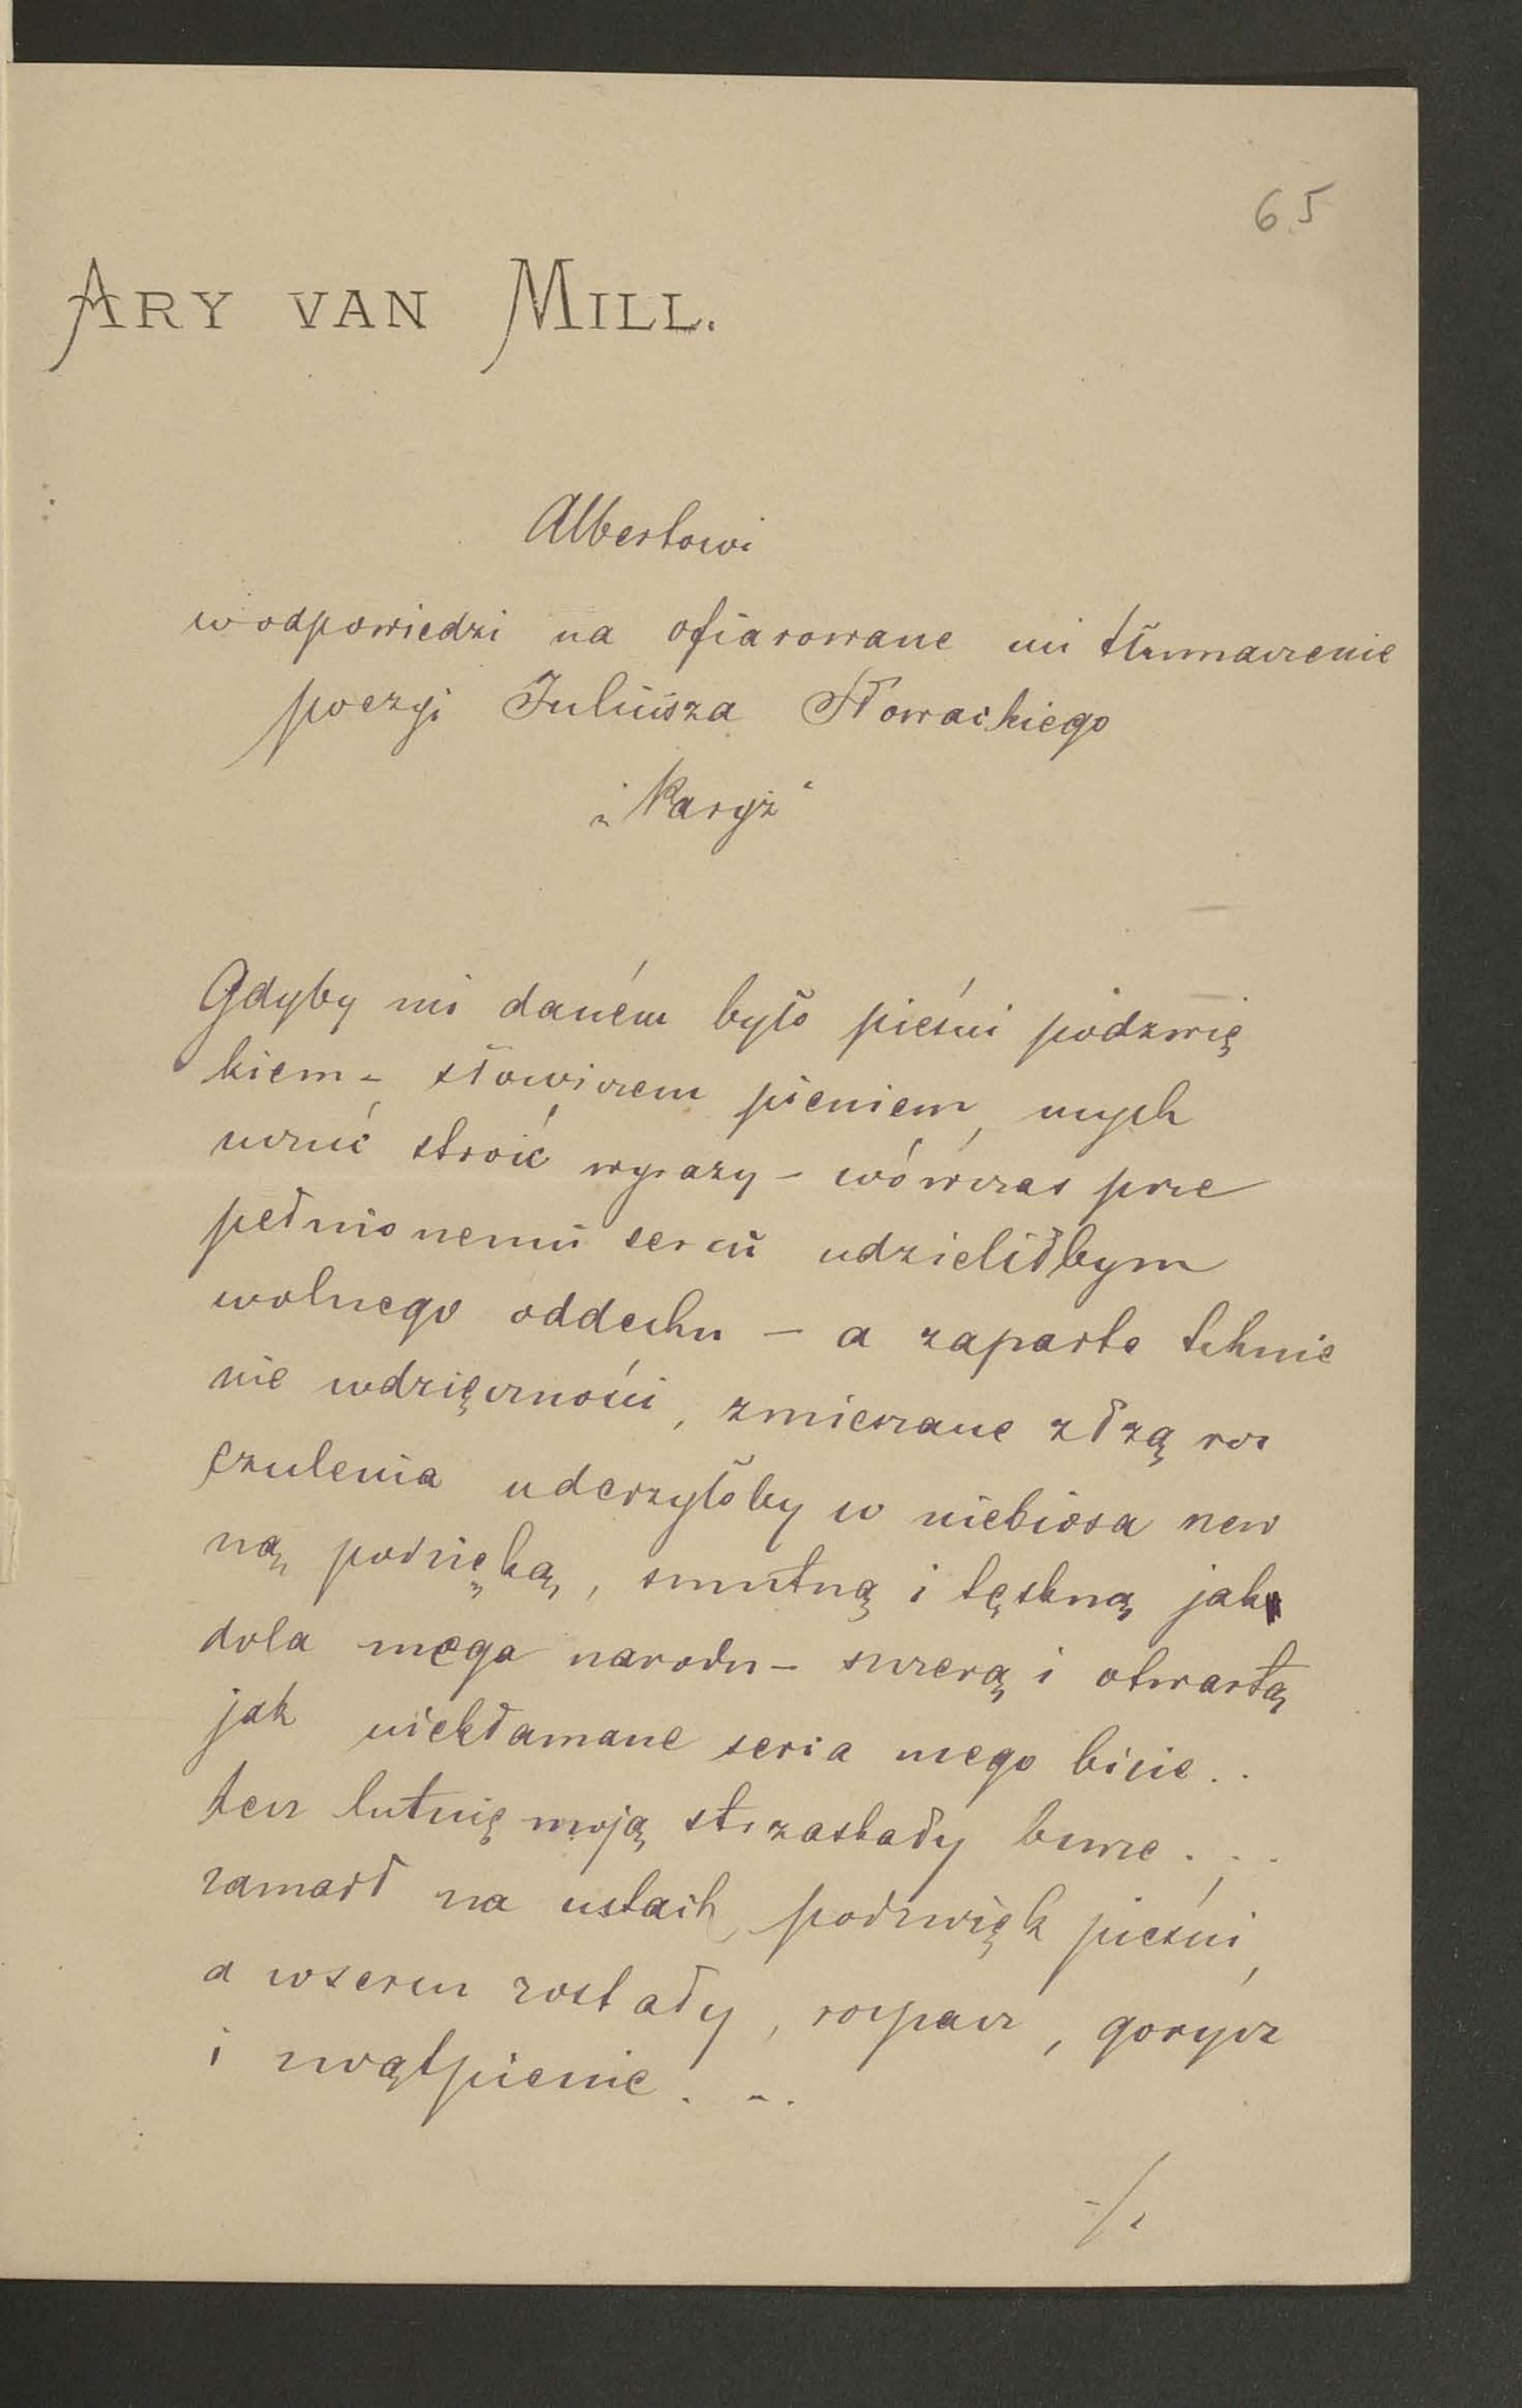 65
ARY VAN MILL.
Albertowi
w odpowiedzi na ofiarowane mi tłumaczenie
poezyi Juliusza Słowackiego
„Paryż“
Gdyby mi daném było pieśni podzwię
kiem - słowiczem pieniem, mych
uczuć stroić wyrazy - wówczas prze
pełnionemu sercu udzieliłbym
wolnego oddechu - a zaparte tchnie
nie wdzięczności, zmieszane z łzą roz
czulenia uderzyłoby w niebiosa rzew
ną podzięką, smutną i tęskną jak
dola mego narodu - szczerą i otwartą
jak niekłamane serca mego bicie..
lecz lutnię moją strzaskały burze...
zamarł na ustach podzwięk pieśni,
a w sercu zostały, rozpacz, gorycz
i zwątpienie...
-/.